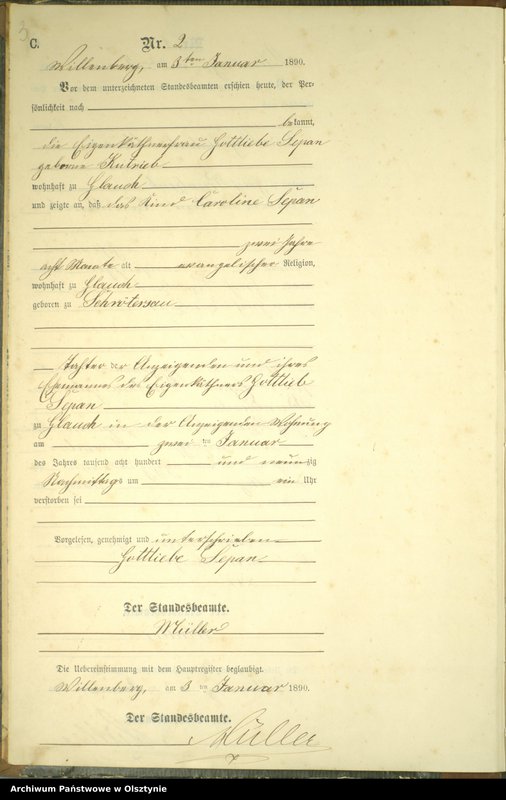 3
C.
Nr. 2
Willenberg, am 3ten Januar 1890.
Vor dem unterzeichneten Standesbeamten erschien heute, der Per-
sönlichkeit nach
bekannt,
die Eigenkäthnerfrau Gottliebe Sepan
geborne Kutrieb
wohnhaft zu Glauch
und zeigte an, daß das Kind Caroline Sepan
zwei Jahre
acht Monate alt evangelischer Religion,
wohnhaft zu Glauch
geboren zu Schrötersau
Tochter der Anzeigenden und ihres
Ehemannes des Eigenkäthners Gottlieb
Sepan
zu Glauch in der Anzeigenden Wohnung
am zwei ten Januar
des Jahres tausend acht hundert und neunzig
Nachmittags um ein Uhr
verstorben sei
Vorgelesen, genehmigt und unterschrieben
Gottliebe Sepan
Der Standesbeamte.
Müller
Die Uebereinstimmung mit dem Hauptregister beglaubigt.
Willenberg, am 3 ten Januar 1890.
Der Standesbeamte.
Müller
Archiwum Państwowe w Olsztynie